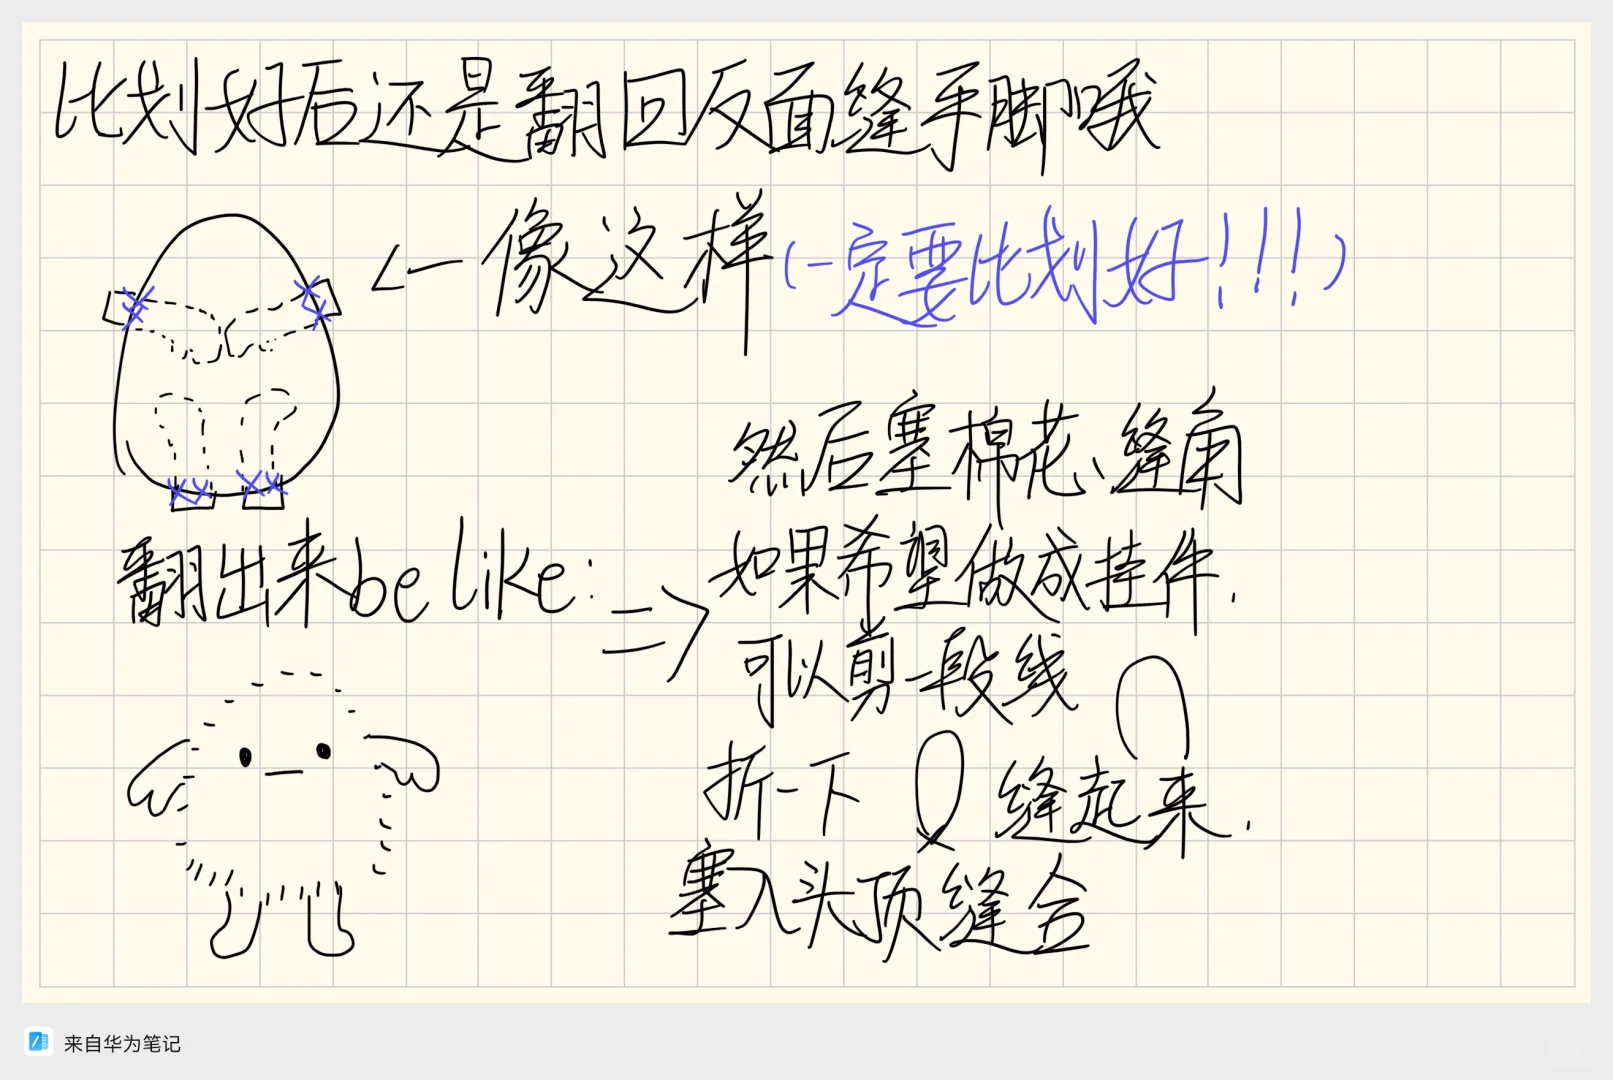 比划好后还是翻回反面缝手脚哦
←像这样(一定要比划好!!!)
翻出来be like:
然后塞棉花、缝角
如果希望做成挂件,
可以剪一段线
折一下 缝起来,
塞入头顶缝合
来自华为笔记